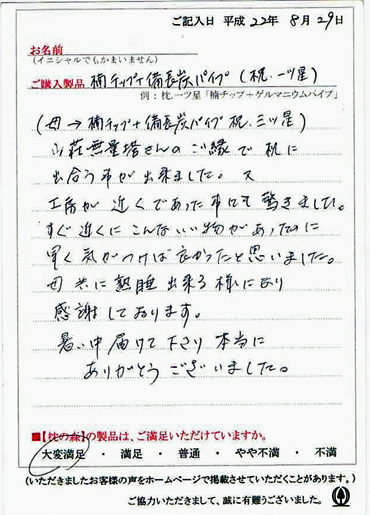 ご記入日 平成 22年 8月 29日
お名前
(イニシャルでもかまいません)
ご購入製品 楠チップ+備長炭パイプ (枕.一ツ星)
例:枕.一ツ星「楠チップ+ゲルマニウムパイプ」
(母→楠チップ+備長炭パイプ 枕.三ツ星)
山荘無量塔さんのご縁で枕に
出合う事が出来ました。又
工房が近くであった事にも驚きました。
すぐ近くにこんないい物があったのに
早く気がつけば良かったと思いました。
母共に熟睡出来る様になり
感謝しております。
暑い中届けて下さり本当に
ありがとうございました。
■【枕の森】の製品は、ご満足いただけていますか。
大変満足 ・ 満足 ・ 普通 ・ やや不満 ・ 不満
(いただきましたお客様の声をホームページで掲載させていただくことがあります。)
ご協力いただきまして、誠に有難うございました。